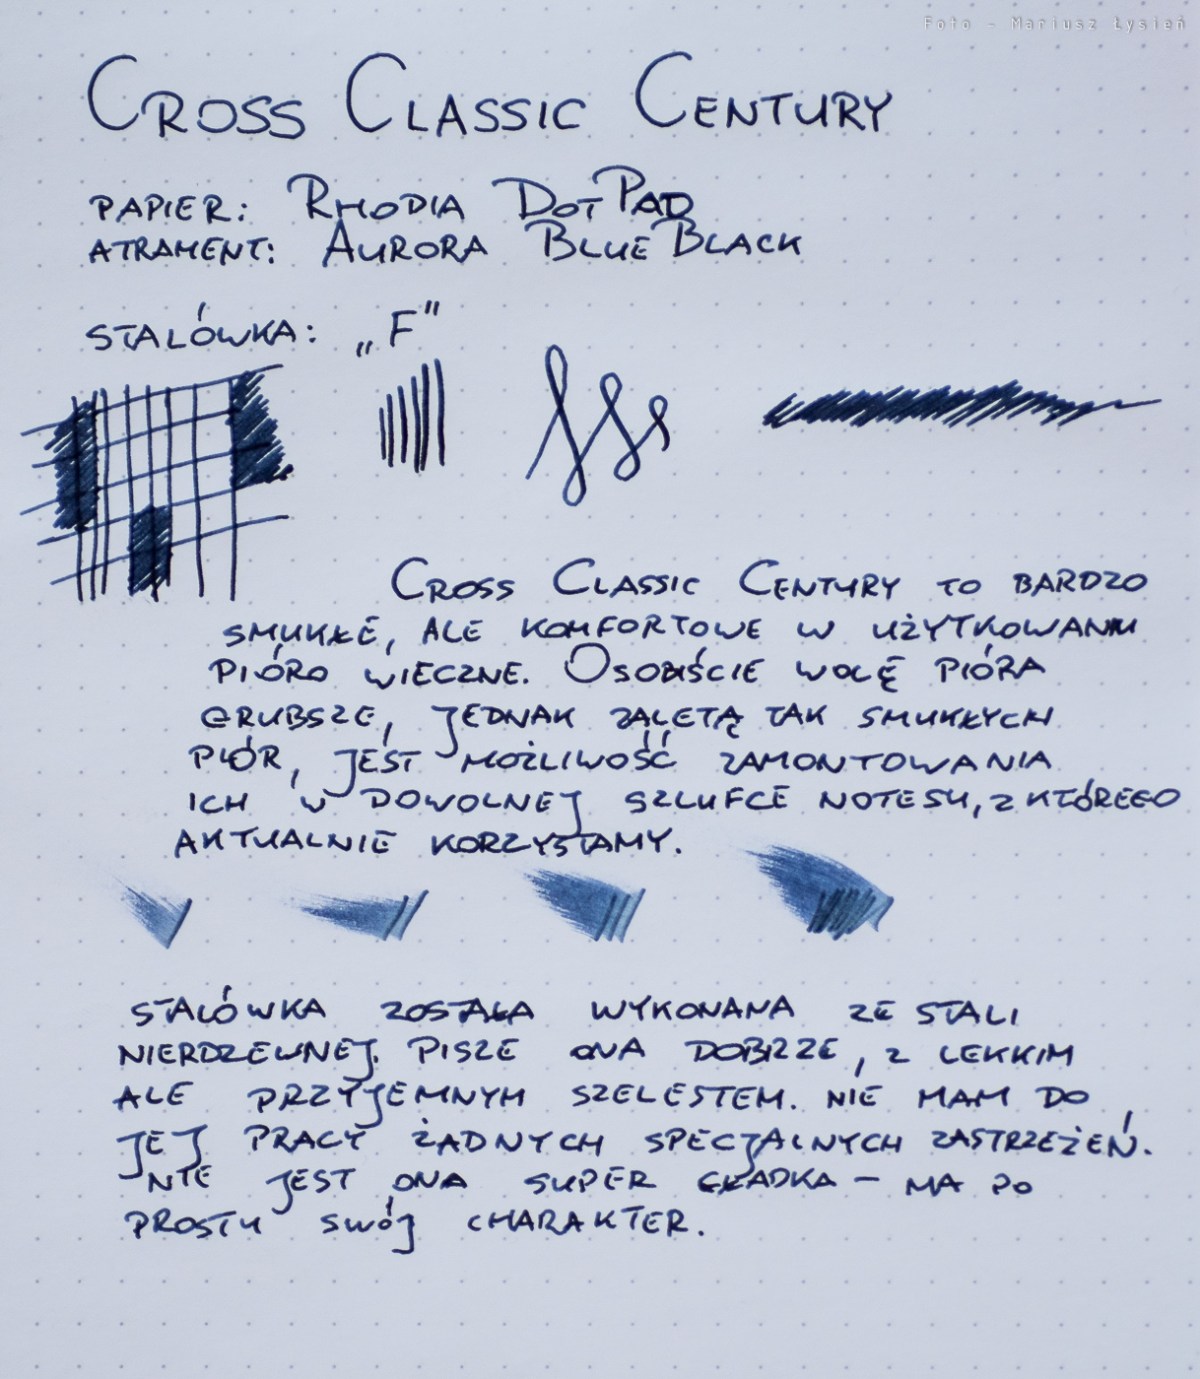 Foto - Mariusz Łysień
CROSS CLASSIC CENTURY
PAPIER: RHODIA DOTPAD
ATRAMENT: AURORA BLUEBLACK
STALÓWKA: „F"
CROSS CLASSIC CENTURY TO BARDZO
SMUKŁE, ALE KOMFORTOWE W UŻYTKOWANIU
PIÓRO WIECZNE. OSOBIŚCIE WOLĘ PIÓRA
GRUBSZE, JEDNAK ZALETĄ TAK SMUKŁYCH
PIÓR, JEST MOŻLIWOŚĆ ZAMONTOWANIA
ICH W DOWOLNEJ SZLUFCE NOTESU, Z KTÓREGO
AKTUALNIE KORZYSTAMY.
STALÓWKA ZOSTAŁA WYKONANA ZE STALI
NIERDZEWNEJ. PISZE ONA DOBRZE, Z LEKKIM
ALE PRZYJEMNYM SZELESTEM. NIE MAM DO
JEJ PRACY ŻADNYCH SPECJALNYCH ZASTRZEŻEŃ.
NIE JEST ONA SUPER GŁADKA – MA PO
PROSTU SWÓJ CHARAKTER.